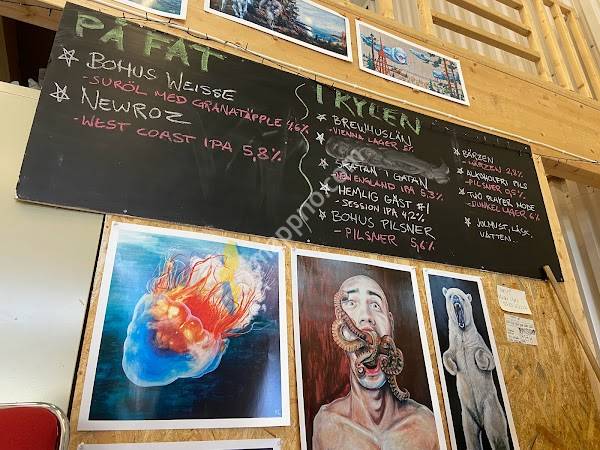 PÅ FAT
BOHUS WEISSE
-SURÖL MED GRANATÄPPLE 4,6%
NEWROZ
-WEST COAST IPA 5,8%
I KYLEN
BREWHUSLÄN
-VIENNA LAGER 5%
SKATAN I GATAN
NEW ENGLAND IPA 5,3%
HEMLIG GÄST #1
- SESSION IPA 4,2%
BOHUS PILSNER
- PILSNER 5,6%
BÄRZEN
-MÄRZEN 2,8%
ALKOHOLFRI PILS
-PILSNER 0,5%
TWO PLAYER MODE
-DUNKEL LAGER 6%
JULMUST, LÄSK,
VATTEN...